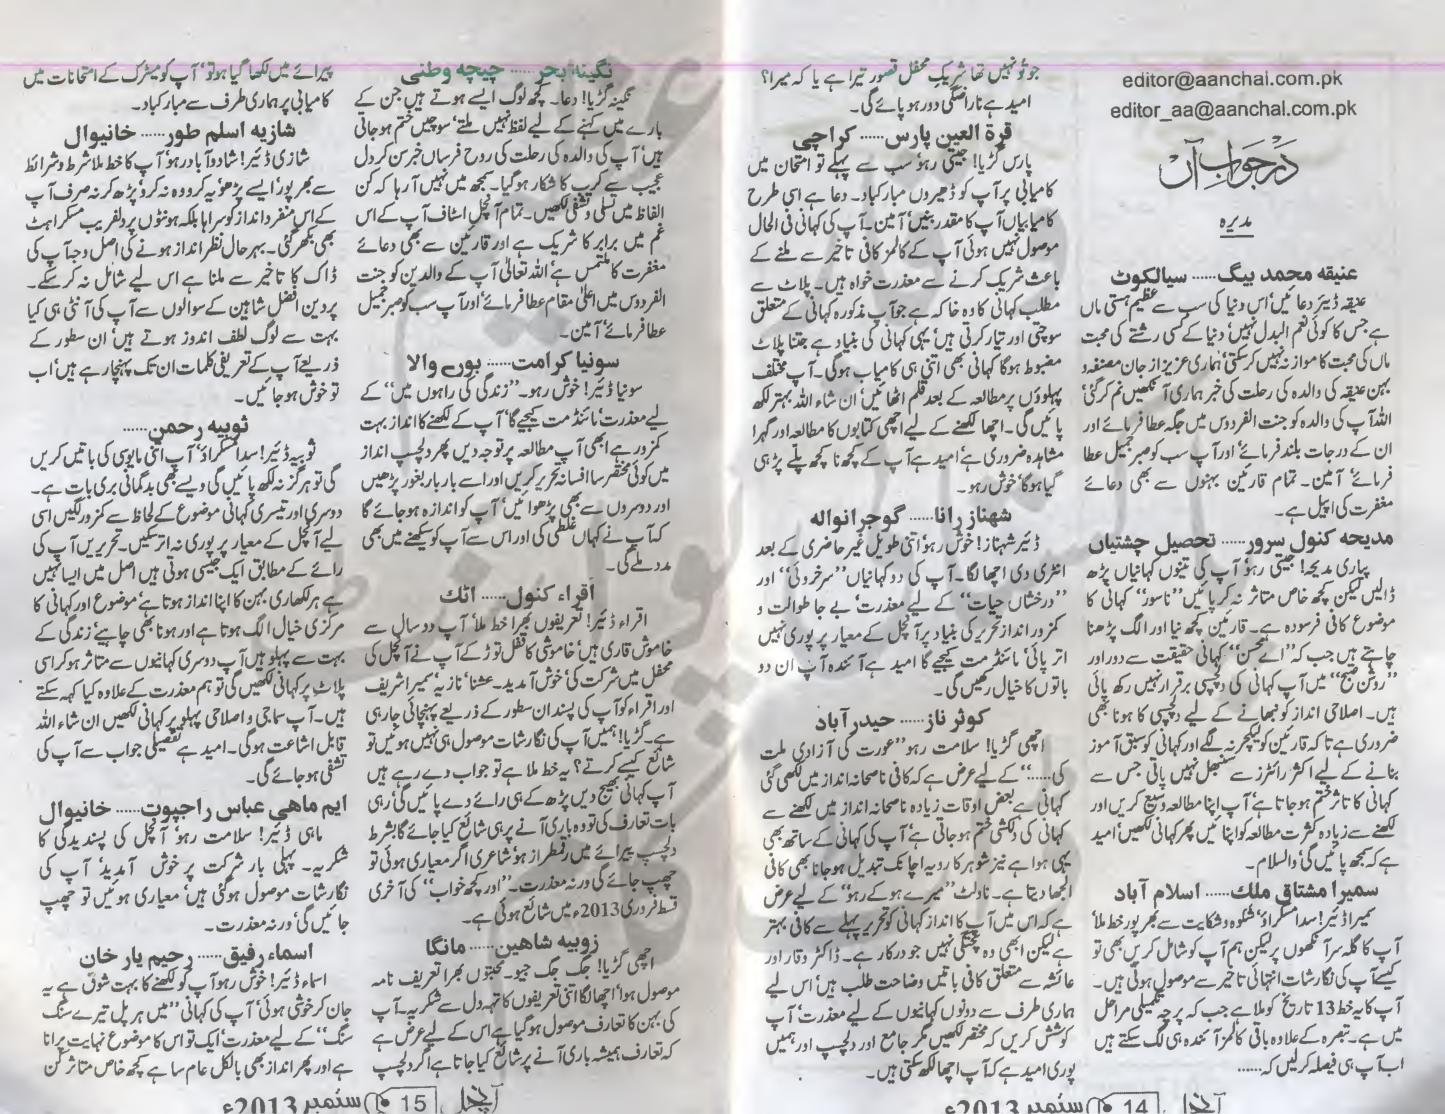 editor@aanchal.com.pk
editor_aa@aanchal.com.pk
در جواب آں
مدیرہ
عنیقہ محمد بیگ...... سیالکوٹ
عنیقہ ڈیئر دعائیں‘ اس دنیا کی سب سے عظیم ہستی ماں
ہے جس کا کوئی نعم البدل نہیں‘ دنیا کے کسی رشتے کی محبت
ماں کی محبت کا موازنہ نہیں کرسکتی‘ ہماری عزیز از جان مصنفہ و
بہن عنیقہ کی والدہ کی رحلت کی خبر ہماری آنکھیں نم کرگئی‘
اللہ آپ کی والدہ کو جنت الفردوس میں جگہ عطا فرمائے اور
ان کے درجات بلند فرمائے‘ اور آپ سب کو صبر جمیل عطا
فرمائے‘ آمین۔ تمام قارئین بہنوں سے بھی دعائے
مغفرت کی اپیل ہے۔
مدیحہ کنول سرور...... تحصیل چشتیاں
پیاری مدیحہ! جیتی رہو‘ آپ کی تینوں کہانیاں پڑھ
ڈالیں لیکن کچھ خاص متاثر نہ کرپائیں ’’ناسور‘‘ کہانی کا
موضوع کافی فرسودہ ہے۔ قارئین کچھ نیا اور الگ پڑھنا
چاہتے ہیں جب کہ ’’اے محسن‘‘ کہانی حقیقت سے دور اور
’’روشن صبح‘‘ میں آپ کہانی کی دلچسپی برقرار نہیں رکھ پائی
ہیں۔ اصلاحی انداز کو نبھانے کے لیے دلچسپی کا ہونا بھی
ضروری ہے تاکہ قارئین کو لیکچر نہ لگے اور کہانی کو سبق آموز
بنانے کے لیے اکثر رائٹرز سے سنبھل نہیں پاتی جس سے
کہانی کا تاثر ختم ہوجاتا ہے‘ آپ اپنا مطالعہ وسیع کریں اور
لکھنے سے زیادہ کثرت مطالعہ کو اپنائیں پھر کہانی لکھیں‘ امید
ہے کہ سمجھ پائیں گی‘ والسلام۔
سمیرا مشتاق ملک...... اسلام آباد
سمیرا ڈیئر! سدا مسکراؤ‘ شکوہ و شکایت سے بھرپور خط ملا‘
آپ کا گلہ سر آنکھوں پر لیکن ہم آپ کو شامل کریں بھی تو
کیسے آپ کی نگارشات انتہائی تاخیر سے موصول ہوتی ہیں۔
آپ کا یہ خط 13 تاریخ کو ملا ہے جب کہ پرچہ تکمیلی مراحل
میں ہے۔ تبصرہ کے علاوہ باقی کالمز آئندہ ہی لگ سکتے ہیں
اب آپ ہی فیصلہ کرلیں کہ......
آنچل 14 ستمبر 2013ء
جو تُو نہیں تھا شریکِ محفل قصور تیرا ہے یا کہ میرا؟
امید ہے ناراضگی دور ہو پائے گی۔
قرۃ العین پارس...... کراچی
پارس گڑیا! جیتی رہو‘ سب سے پہلے تو امتحان میں
کامیابی پر آپ کو ڈھیروں مبارکباد۔ دعا ہے اسی طرح
کامیابیاں آپ کا مقدر بنیں‘ آمین۔ آپ کی کہانی فی الحال
موصول نہیں ہوئی آپ کے کالمز کافی تاخیر سے ملنے کے
باعث شریک کرنے سے معذرت خواہ ہیں۔ پلاٹ سے
مطلب کہانی کا وہ خاکہ ہے جو آپ مذکورہ کہانی کے متعلق
سوچتی اور تیار کرتی ہیں‘ یہی کہانی کی بنیاد ہے جتنا پلاٹ
مضبوط ہوگا کہانی بھی اتنی ہی کامیاب ہوگی۔ آپ مختلف
پہلوؤں پر مطالعہ کے بعد قلم اٹھائیں‘ ان شاء اللہ بہتر لکھ
پائیں گی۔ اچھا لکھنے کے لیے اچھی کتابوں کا مطالعہ اور گہرا
مشاہدہ ضروری ہے‘ امید ہے آپ کے کچھ نا کچھ پلے پڑ ہی
گیا ہوگا‘ خوش رہو۔
شہناز رانا...... گوجرانوالہ
ڈیئر شہناز! خوش رہو‘ اتنی طویل غیر حاضری کے بعد
انٹری دی اچھا لگا۔ آپ کی دو کہانیاں ’’سرخروئی‘‘ اور
’’درخشاں حیات‘‘ کے لیے معذرت‘ بے جا طوالت و
کمزور انداز تحریر کی بنیاد پر آنچل کے معیار پر پوری نہیں
اتر پائی‘ مائنڈ مت کیجیے گا امید ہے آئندہ آپ ان دو
باتوں کا خیال رکھیں گی۔
کوثر ناز...... حیدر آباد
اچھی گڑیا! سلامت رہو ’’عورت کی آزادی ملت
کی.....‘‘ کے لیے عرض ہے کہ کافی ناصحانہ انداز میں لکھی گئی
کہانی ہے بعض اوقات زیادہ ناصحانہ انداز میں لکھنے سے
کہانی کی دلکشی ختم ہوجاتی ہے‘ آپ کی کہانی کے ساتھ بھی
یہی ہوا ہے نیز شوہر کا رویہ اچانک تبدیل ہوجانا بھی کافی
الجھا دیتا ہے۔ ناولٹ ’’میرے ہوکے رہو‘‘ کے لیے عرض
ہے کہ اس میں آپ کا انداز کہانی کو تحریر پہلے سے کافی بہتر
ہے لیکن ابھی وہ پختگی نہیں جو درکار ہے۔ ڈاکٹر وقار اور
عائشہ سے متعلق کافی باتیں وضاحت طلب ہیں‘ اس لیے
ہماری طرف سے دونوں کہانیوں کے لیے معذرت‘ آپ
کوشش کریں کہ مختصر لکھیں مگر جامع اور دلچسپ اور ہمیں
پوری امید ہے کہ آپ اچھا لکھ سکتی ہیں۔
نگینہ بحر...... چیچہ وطنی
نگینہ گڑیا! دعا۔ کچھ لوگ ایسے ہوتے ہیں جن کے
بارے میں کہنے کے لیے لفظ نہیں ملتے‘ سوچیں ختم ہوجاتی
ہیں‘ آپ کی والدہ کی رحلت کی روح فرساں خبر سن کر دل
عجیب سے کرب کا شکار ہوگیا۔ سمجھ میں نہیں آرہا کہ کن
الفاظ میں تسلی و تشفی لکھیں۔ تمام آنچل اسٹاف آپ کے اس
غم میں برابر کا شریک ہے اور قارئین سے بھی دعائے
مغفرت کا ملتمس ہے‘ اللہ تعالیٰ آپ کے والدین کو جنت
الفردوس میں اعلیٰ مقام عطا فرمائے‘ اور آپ سب کو صبر جمیل
عطا فرمائے‘ آمین۔
سونیا کرامت...... بورے والا
سونیا ڈیئر! خوش رہو۔ ’’زندگی کی راہوں میں‘‘ کے
لیے معذرت‘ مائنڈ مت کیجیے گا‘ آپ کے لکھنے کا انداز بہت
کمزور ہے ابھی آپ مطالعہ پر توجہ دیں پھر دلچسپ انداز
میں کوئی مختصر سا افسانہ تحریر کریں اور اسے بار بار بغور پڑھیں
اور دوسروں سے بھی پڑھوائیں‘ آپ کو اندازہ ہوجائے گا
کہ آپ نے کہاں غلطی کی اور اس سے آپ کو سیکھنے میں بھی
مدد ملے گی۔
اقراء کنول...... اٹک
اقراء ڈیئر! تعریفوں بھرا خط ملا‘ آپ دو سال سے
خاموش قاری ہیں‘ خاموشی کا قفل توڑ کے آپ نے آنچل کی
محفل میں شرکت کی‘ خوش آمدید۔ عشنا‘ نازیہ‘ سمیرا شریف
اور اقراء کو آپ کی پسند ان سطور کے ذریعے پہنچائی جارہی
ہے۔ گڑیا! ہمیں آپ کی نگارشات موصول ہی نہیں ہوئیں تو
شائع کیسے کرتے؟ یہ خط ملا ہے تو جواب دے رہے ہیں
آپ کہانی بھیج دیں پڑھ کے ہی رائے دے پائیں گی‘ رہی
بات تعارف کی تو وہ باری آنے پر ہی شائع کیا جائے گا بشرط
دلچسپ پیرائے میں رقمطراز ہو‘ شاعری اگر معیاری ہوئی تو
چھپ جائے گی ورنہ معذرت۔ ’’اور کچھ خواب‘‘ کی آخری
قسط فروری 2013ء میں شائع ہوئی ہے۔
زوبیہ شاھین...... مانگا
اچھی گڑیا! جگ جگ جیو۔ محبتوں بھرا تعریف نامہ
موصول ہوا‘ اچھا لگا اتنی تعریفوں کا تہہ دل سے شکریہ۔ آپ
کی بہن کا تعارف موصول ہوگیا ہے اس کے لیے عرض ہے
کہ تعارف ہمیشہ باری آنے پر شائع کیا جاتا ہے اگر دلچسپ
پیرائے میں لکھا گیا ہو تو‘ آپ کو میٹرک کے امتحانات میں
کامیابی پر ہماری طرف سے مبارکباد۔
شازیہ اسلم طور...... خانیوال
شازی ڈیئر! شاد و آباد رہو‘ آپ کا خط ملا شرط و شرائط
سے بھرپور‘ ایسے پڑھو یہ کرو وہ نہ کرو‘ پڑھ کر نہ صرف آپ
کے اس منفرد انداز کو سراہا بلکہ ہونٹوں پر دلفریب مسکراہٹ
بھی بکھر گئی۔ بہرحال نظر انداز ہونے کی اصل وجہ آپ کی
ڈاک کا تاخیر سے ملنا ہے اس لیے شامل نہ کرسکے۔
پروین افضل شاہین کے سوالوں سے آپ کی آنٹی ہی کیا
بہت سے لوگ لطف اندوز ہوتے ہیں‘ ان سطور کے
ذریعے آپ کے تعریفی کلمات ان تک پہنچا رہے ہیں‘ اب
تو خوش ہوجائیں۔
ثوبیہ رحمن......
ثوبیہ ڈیئر! سدا مسکراؤ‘ آپ اتنی مایوسی کی باتیں کریں
گی تو ہرگز نہ لکھ پائیں گی ویسے بھی بدگمانی بری بات ہے۔
دوسری اور تیسری کہانی موضوع کے لحاظ سے کمزور لگیں اسی
لیے آنچل کے معیار پر پوری نہ اترسکیں۔ تحریریں آپ کی
رائے کے مطابق ایک جیسی ہوتی ہیں اصل میں ایسا نہیں
ہے ہر لکھاری بہن کا اپنا انداز ہوتا ہے‘ موضوع اور کہانی کا
مرکزی خیال الگ ہوتا ہے اور ہونا بھی چاہیے‘ زندگی کے
بہت سے پہلو ہیں آپ دوسری کہانیوں سے متاثر ہوکر اسی
پلاٹ پر کہانی لکھیں گی تو ہم معذرت کے علاوہ کیا کہہ سکتے
ہیں۔ آپ سماجی و اصلاحی پہلو پر کہانی لکھیں ان شاء اللہ
قابل اشاعت ہوگی۔ امید ہے تفصیلی جواب سے آپ کی
تشفی ہوجائے گی۔
ایم ماھی عباس راجپوت...... خانیوال
ماہی ڈیئر! سلامت رہو‘ آنچل کی پسندیدگی کا
شکریہ۔ پہلی بار شرکت پر خوش آمدید‘ آپ کی
نگارشات موصول ہوگئی ہیں‘ معیاری ہوئیں تو چھپ
جائیں گی‘ ورنہ معذرت۔
اسماء رفیق...... رحیم یار خان
اسماء ڈیئر! خوش رہو آپ کو لکھنے کا بہت شوق ہے یہ
جان کر خوشی ہوئی‘ آپ کی کہانی ’’میں ہر پل تیرے سنگ
سنگ‘‘ کے لیے معذرت‘ ایک تو اس کا موضوع نہایت پرانا
ہے اور پھر انداز بھی بالکل عام سا ہے کچھ خاص متاثر کن
آنچل 15 ستمبر 2013ء